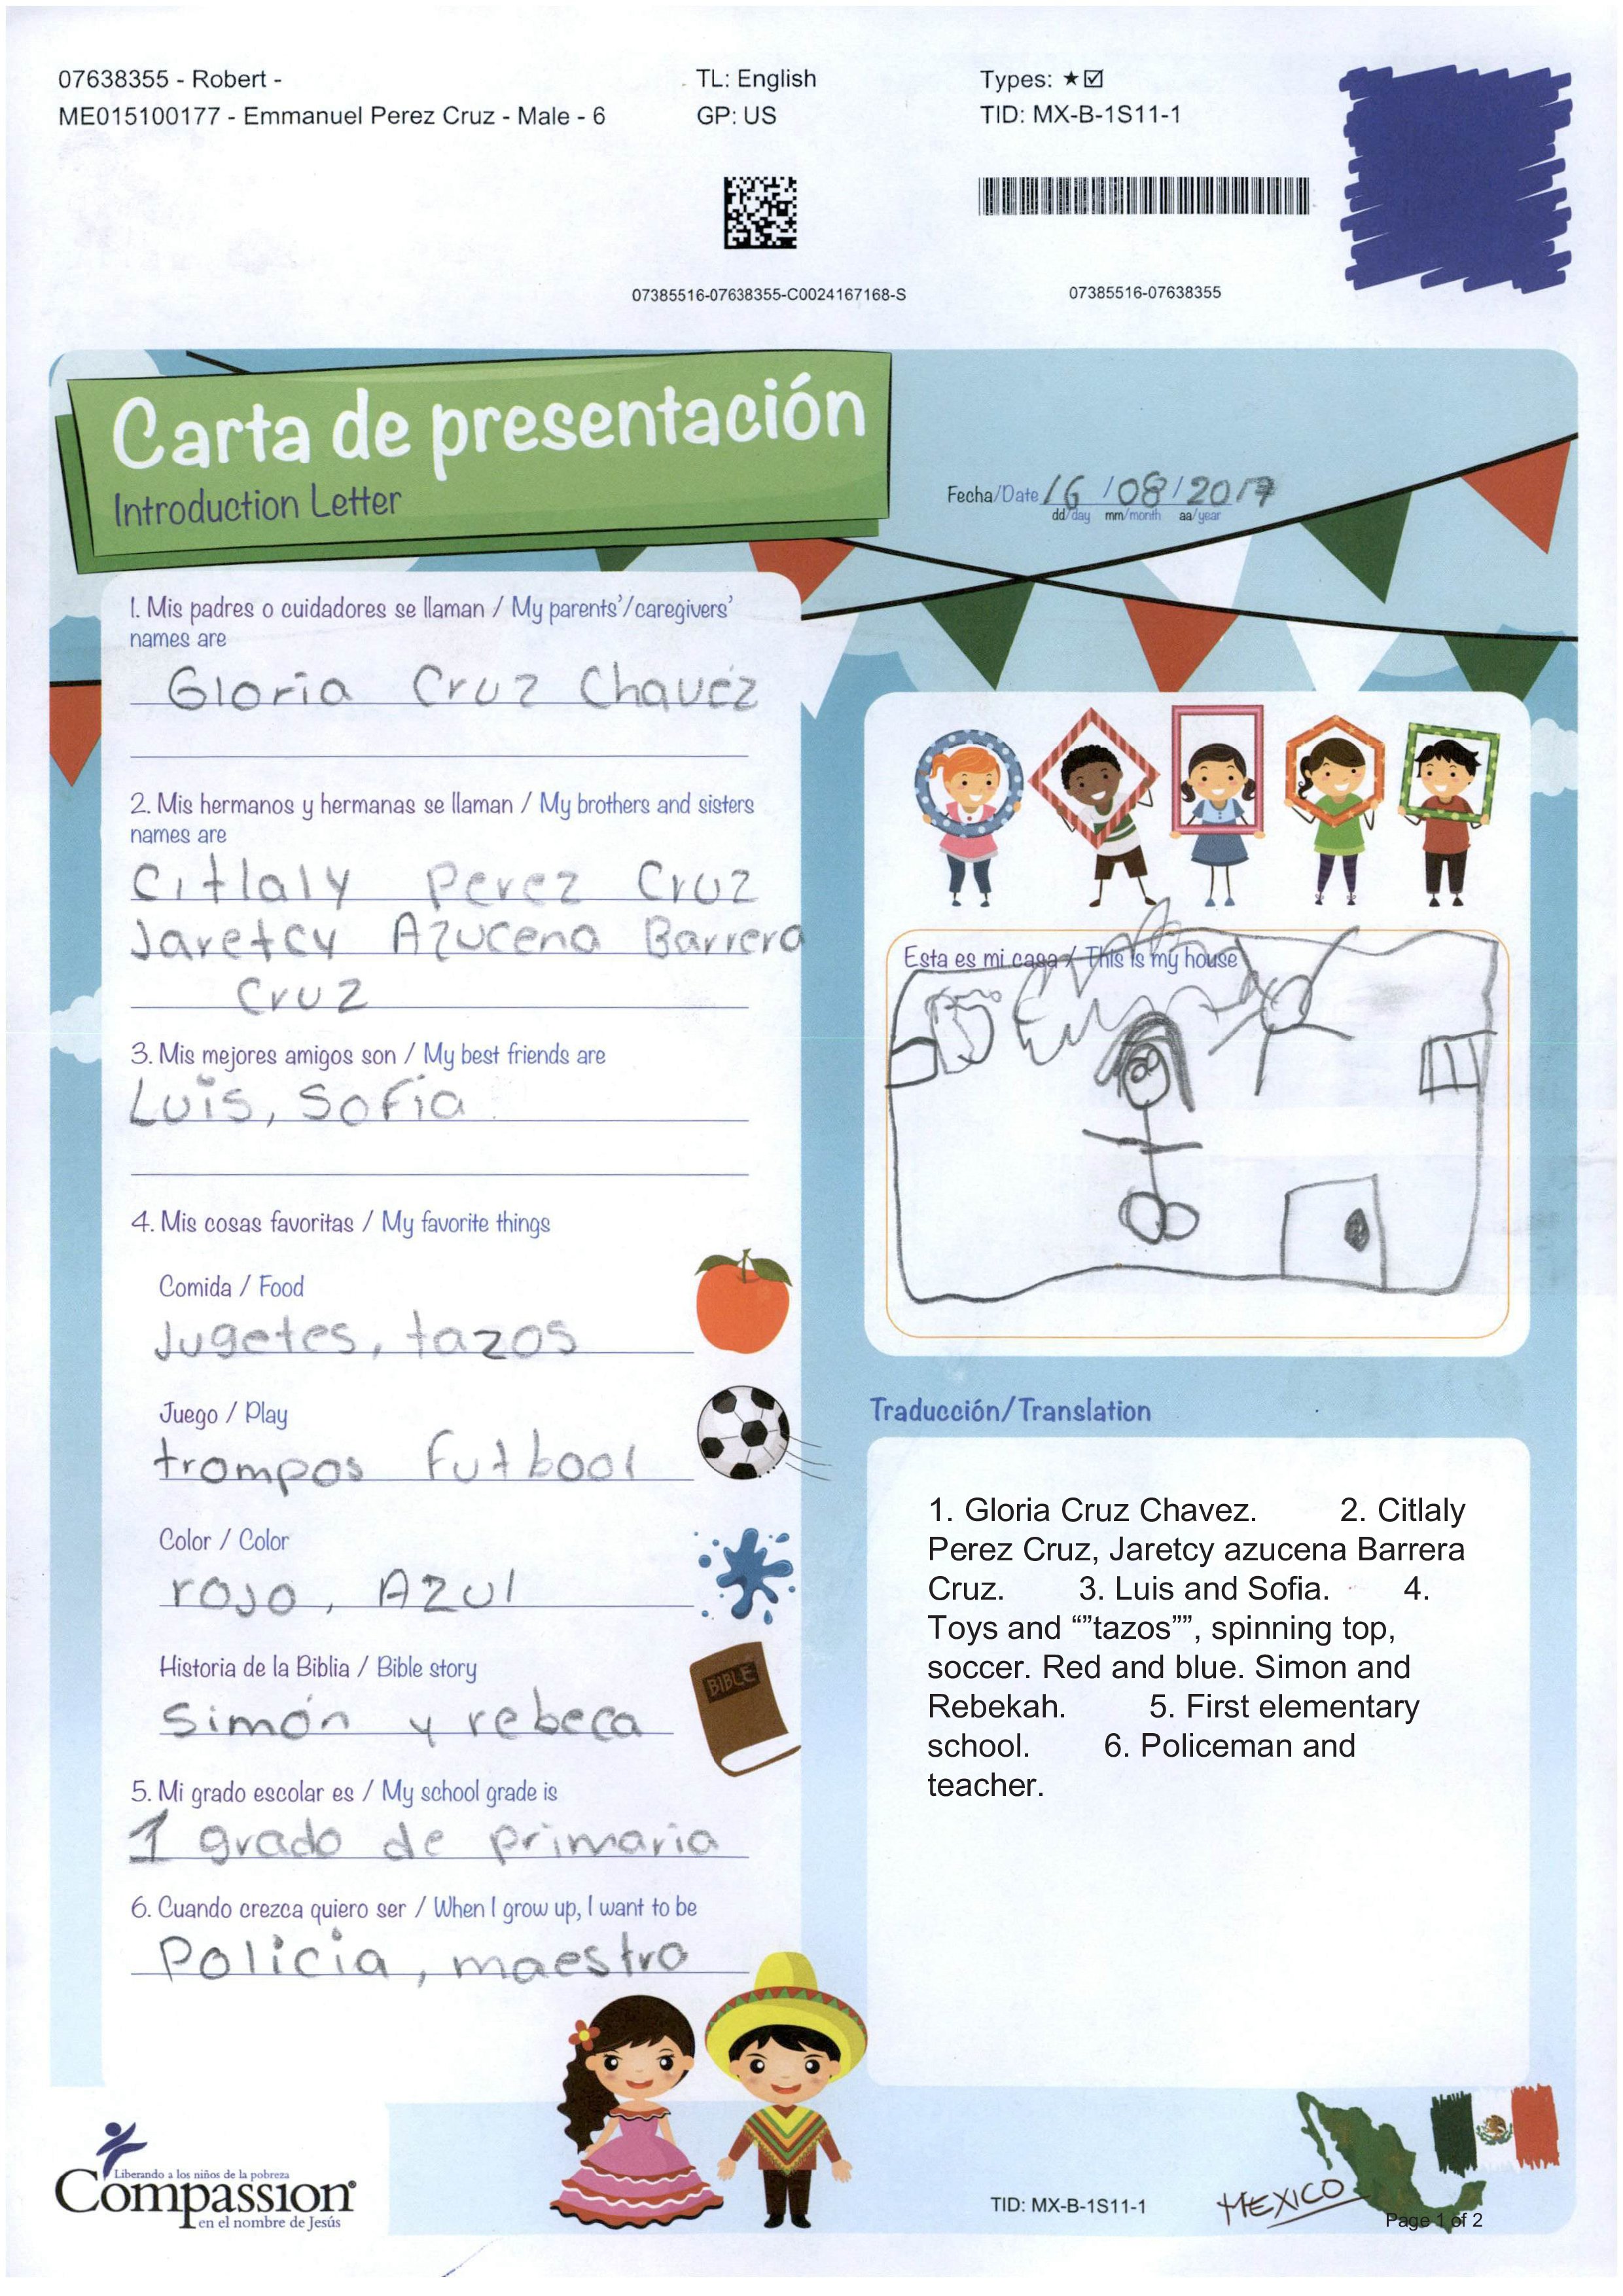 07638355 - Robert -
ME015100177 - Emmanuel Perez Cruz - Male - 6
TL: English
GP: US
Types: ★☑
TID: MX-B-1S11-1
07385516-07638355-C0024167168-S
07385516-07638355
Carta de presentación
Introduction Letter
Fecha/Date 16/08/2017
dd/day mm/month aa/year
1. Mis padres o cuidadores se llaman / My parents'/caregivers'
names are
Gloria Cruz Chavéz
2. Mis hermanos y hermanas se llaman / My brothers and sisters
names are
Citlaly perez Cruz
Jaretcy Azucena Barrera
Cruz
3. Mis mejores amigos son / My best friends are
Luis, Sofia
4. Mis cosas favoritas / My favorite things
Comida / Food
Jugetes, tazos
Juego / Play
trompos futbool
Color / Color
rojo, Azul
Historia de la Biblia / Bible story
Simón y rebeca
BIBLE
5. Mi grado escolar es / My school grade is
1 grado de primaria
6. Cuando crezca quiero ser / When I grow up, I want to be
Policia, maestro
Esta es mi casa / This is my house
Traducción/Translation
1. Gloria Cruz Chavez. 2. Citlaly
Perez Cruz, Jaretcy azucena Barrera
Cruz. 3. Luis and Sofia. 4.
Toys and “”tazos””, spinning top,
soccer. Red and blue. Simon and
Rebekah. 5. First elementary
school. 6. Policeman and
teacher.
Liberando a los niños de la pobreza
Compassion®
en el nombre de Jesús
TID: MX-B-1S11-1
MEXICO
Page 1 of 2